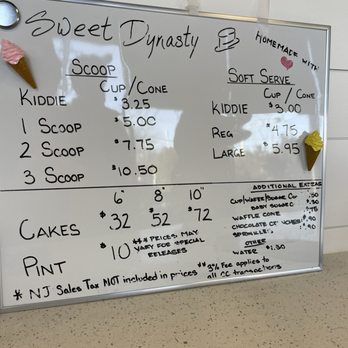 Sweet Dynasty
HOMEMADE WITH
SCOOP
CUP/CONE
KIDDIE $3.25
1 SCOOP $5.00
2 SCOOP $7.75
3 SCOOP $10.50
SOFT SERVE
CUP/CONE
KIDDIE $3.00
REG $4.75
LARGE $5.95
6" 8" 10"
CAKES $32 $52 $72
PINT $10
*** PRICES MAY
VARY FOR SPECIAL
RELEASES
ADDITIONAL EXTRAS
CUP/WAFER/SUGAR .50
WAFFLE CONE
CHOCOLATE
SPRINKLES
OTHER
WATER $1.50
* NJ Sales Tax NOT included in prices
** 3% Fee applies to
all CC transactions